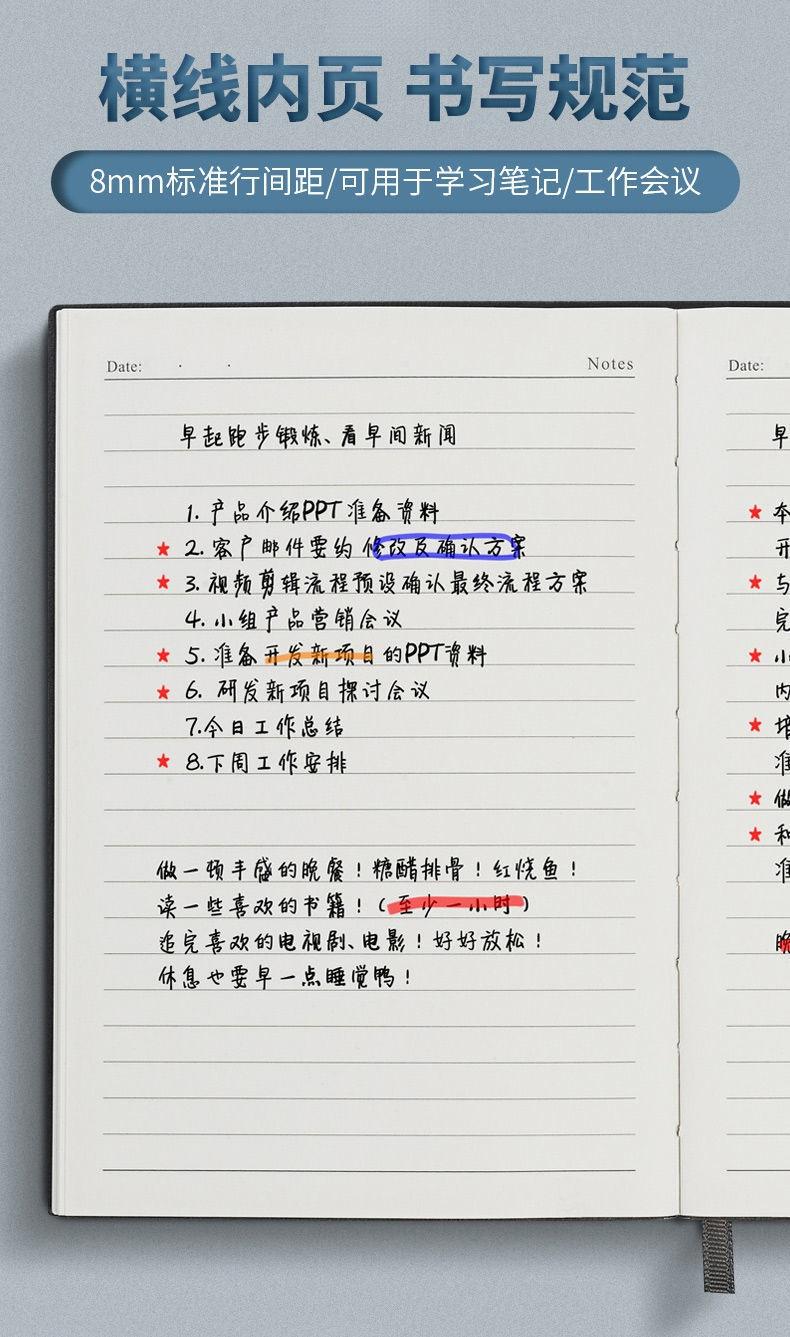 横线内页 书写规范
8mm标准行间距/可用于学习笔记/工作会议
Date: · ·
Notes
早起跑步锻炼、看早间新闻
1. 产品介绍PPT准备资料
★ 2. 客户邮件要约 修改及确认方案
★ 3. 视频剪辑流程预设确认最终流程方案
4. 小组产品营销会议
★ 5. 准备开发新项目的PPT资料
★ 6. 研发新项目探讨会议
7.今日工作总结
★ 8.下周工作安排
做一顿丰盛的晚餐！糖醋排骨！红烧鱼！
读一些喜欢的书籍！（至少一小时）
追完喜欢的电视剧、电影！好好放松！
休息也要早一点睡觉鸭！
Date:
早
★ 本
开
★ 与
完
★ 小
内
★ 培
准
★ 做
★ 和
准
晚